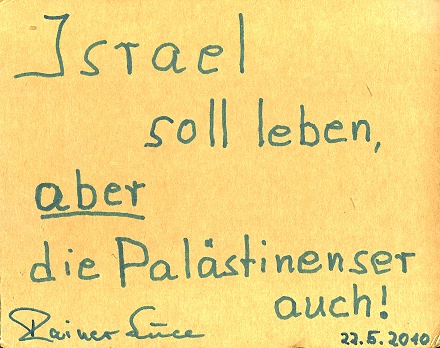 Israel
soll leben,
aber
die Palästinenser
auch!
Rainer Luce
22.5.2010